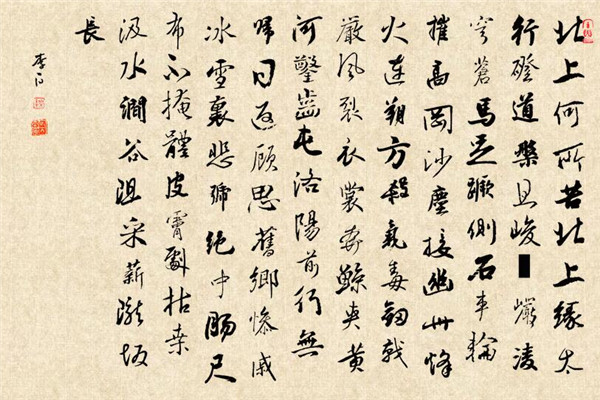 北上何所苦北上緣太
行磴道盤且峻巖凌
穹蒼馬足蹶側石車輪
摧高岡沙塵接幽州烽
火連朔方殺氣毒劒戟
嚴風裂衣裳奔鯨夾黃
河鑿齒屯洛陽前行無
歸日返顧思舊鄉慘戚
冰雪裏悲號絕中腸尺
布不掩體皮膚劇枯桒
汲水澗谷阻采薪隴坂
長
李白